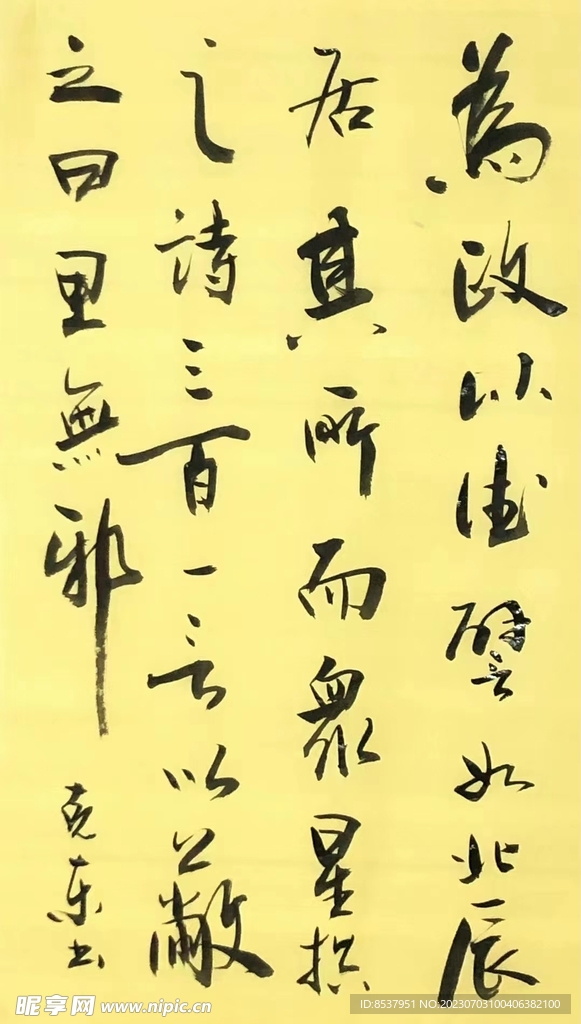 為政以德譬如北辰
居其所而眾星拱
之詩三百一言以蔽
之曰思無邪
克东书
昵享网 www.nipic.cn
ID:8537951 NO:20230703100406382100